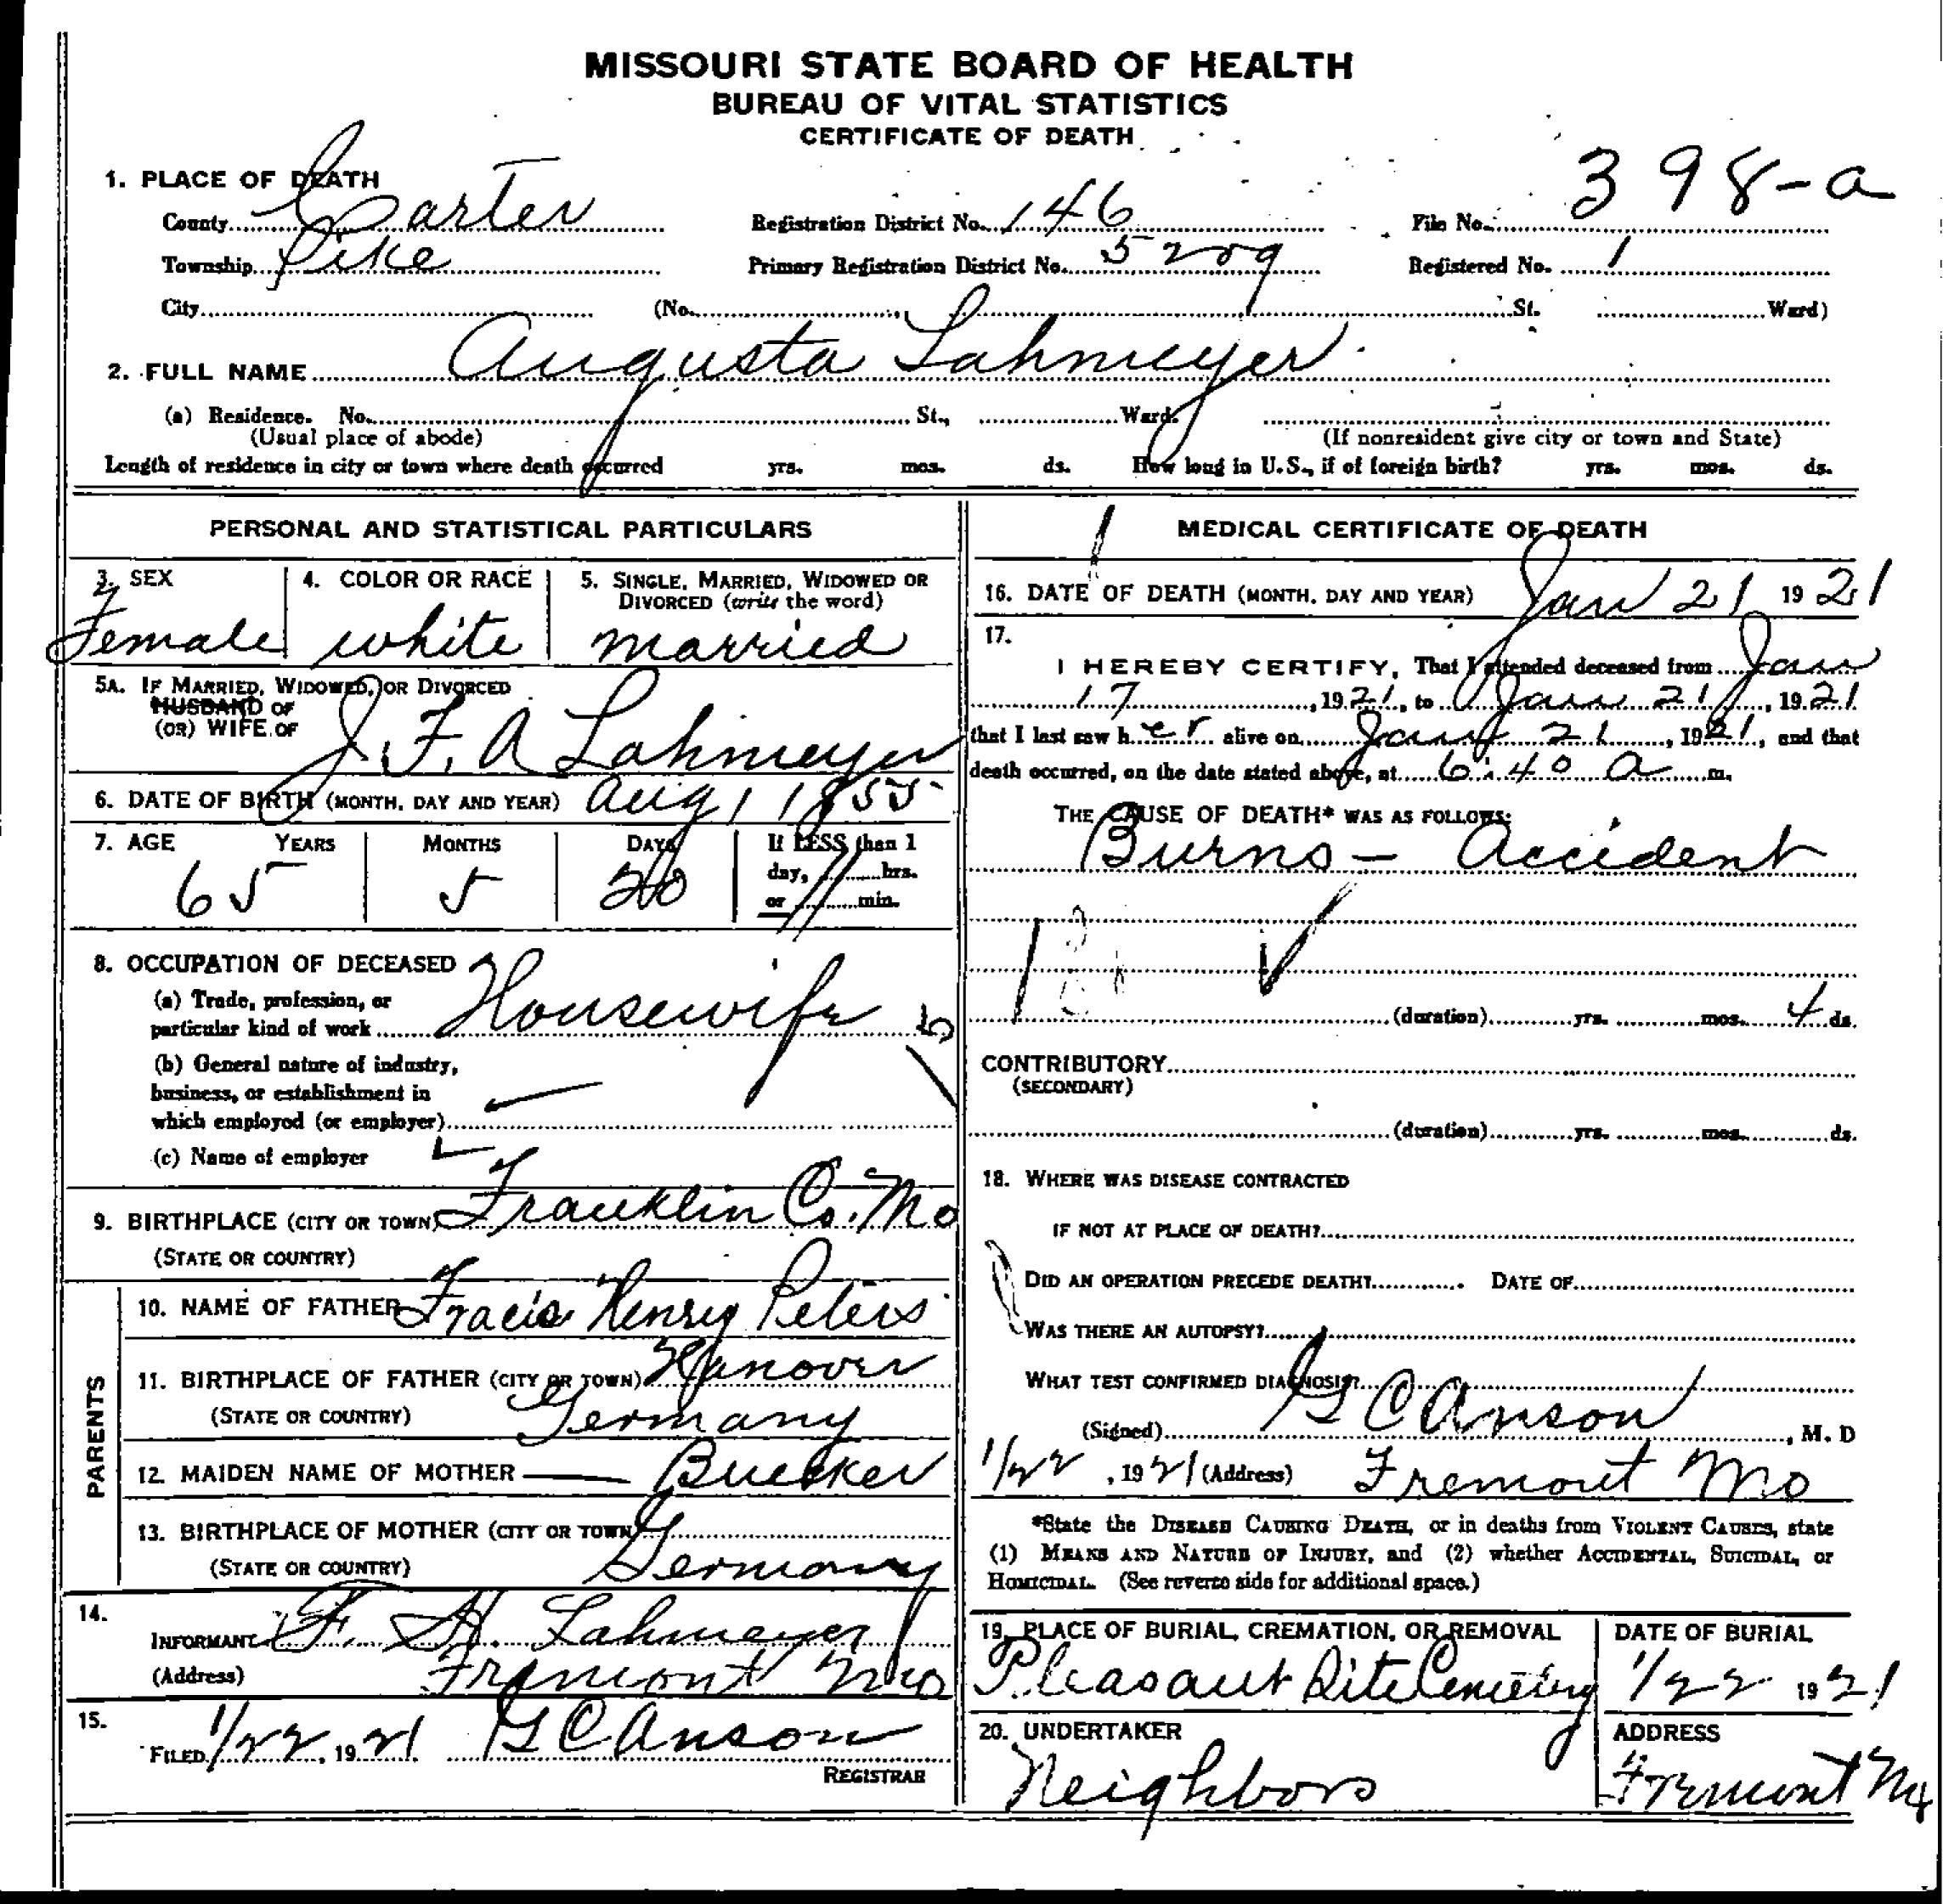 MISSOURI STATE BOARD OF HEALTH
BUREAU OF VITAL STATISTICS
CERTIFICATE OF DEATH
398-a
1. PLACE OF DEATH
County Carter Registration District No. 146 File No.
Township Pike Primary Registration District No. 5209 Registered No. 1
City (No. St. Ward)
2. FULL NAME Augusta Lahmeyer
(a) Residence. No. St., Ward.
(Usual place of abode) (If nonresident give city or town and State)
Length of residence in city or town where death occurred yrs. mos. ds. How long in U.S., if of foreign birth? yrs. mos. ds.
PERSONAL AND STATISTICAL PARTICULARS
3. SEX 4. COLOR OR RACE 5. SINGLE, MARRIED, WIDOWED OR
DIVORCED (write the word)
Female white married
5A. IF MARRIED, WIDOWED, OR DIVORCED
HUSBAND OF
(OR) WIFE OF J. F. A Lahmeyer
6. DATE OF BIRTH (MONTH, DAY AND YEAR) Aug 1 1855
7. AGE YEARS MONTHS DAYS If LESS than 1
day, hrs.
or min.
65 5 20
8. OCCUPATION OF DECEASED
(a) Trade, profession, or
particular kind of work Housewife
(b) General nature of industry,
business, or establishment in
which employed (or employer)
(c) Name of employer
9. BIRTHPLACE (CITY OR TOWN) Franklin Co. Mo
(STATE OR COUNTRY)
PARENTS
10. NAME OF FATHER Fracis Henry Peters
11. BIRTHPLACE OF FATHER (CITY OR TOWN) Hanover
(STATE OR COUNTRY) Germany
12. MAIDEN NAME OF MOTHER — Buecker
13. BIRTHPLACE OF MOTHER (CITY OR TOWN)
(STATE OR COUNTRY) Germany
14.
INFORMANT F. H. Lahmeyer
(Address) Fremont Mo
15.
FILED 1/22, 1921 G C Anson
REGISTRAR
MEDICAL CERTIFICATE OF DEATH
16. DATE OF DEATH (MONTH, DAY AND YEAR) Jan 21 1921
17.
I HEREBY CERTIFY, That I attended deceased from Jan
17, 1921, to Jan 21, 1921
that I last saw her alive on Jany 21, 1921, and that
death occurred, on the date stated above, at 6:40 a m.
THE CAUSE OF DEATH* WAS AS FOLLOWS:
Burns – Accident
(duration) yrs. mos. 4 ds.
CONTRIBUTORY
(SECONDARY)
(duration) yrs. mos. ds.
18. WHERE WAS DISEASE CONTRACTED
IF NOT AT PLACE OF DEATH?
DID AN OPERATION PRECEDE DEATH? DATE OF
WAS THERE AN AUTOPSY?
WHAT TEST CONFIRMED DIAGNOSIS?
(Signed) G C Anson, M. D
1/22, 1921 (Address) Fremont Mo
*State the DISEASE CAUSING DEATH, or in deaths from VIOLENT CAUSES, state
(1) MEANS AND NATURE OF INJURY, and (2) whether ACCIDENTAL, SUICIDAL, or
HOMICIDAL. (See reverse side for additional space.)
19. PLACE OF BURIAL, CREMATION, OR REMOVAL DATE OF BURIAL
Pleasant Site Cemetery 1/22 1921
20. UNDERTAKER ADDRESS
Neighbors Fremont Mo